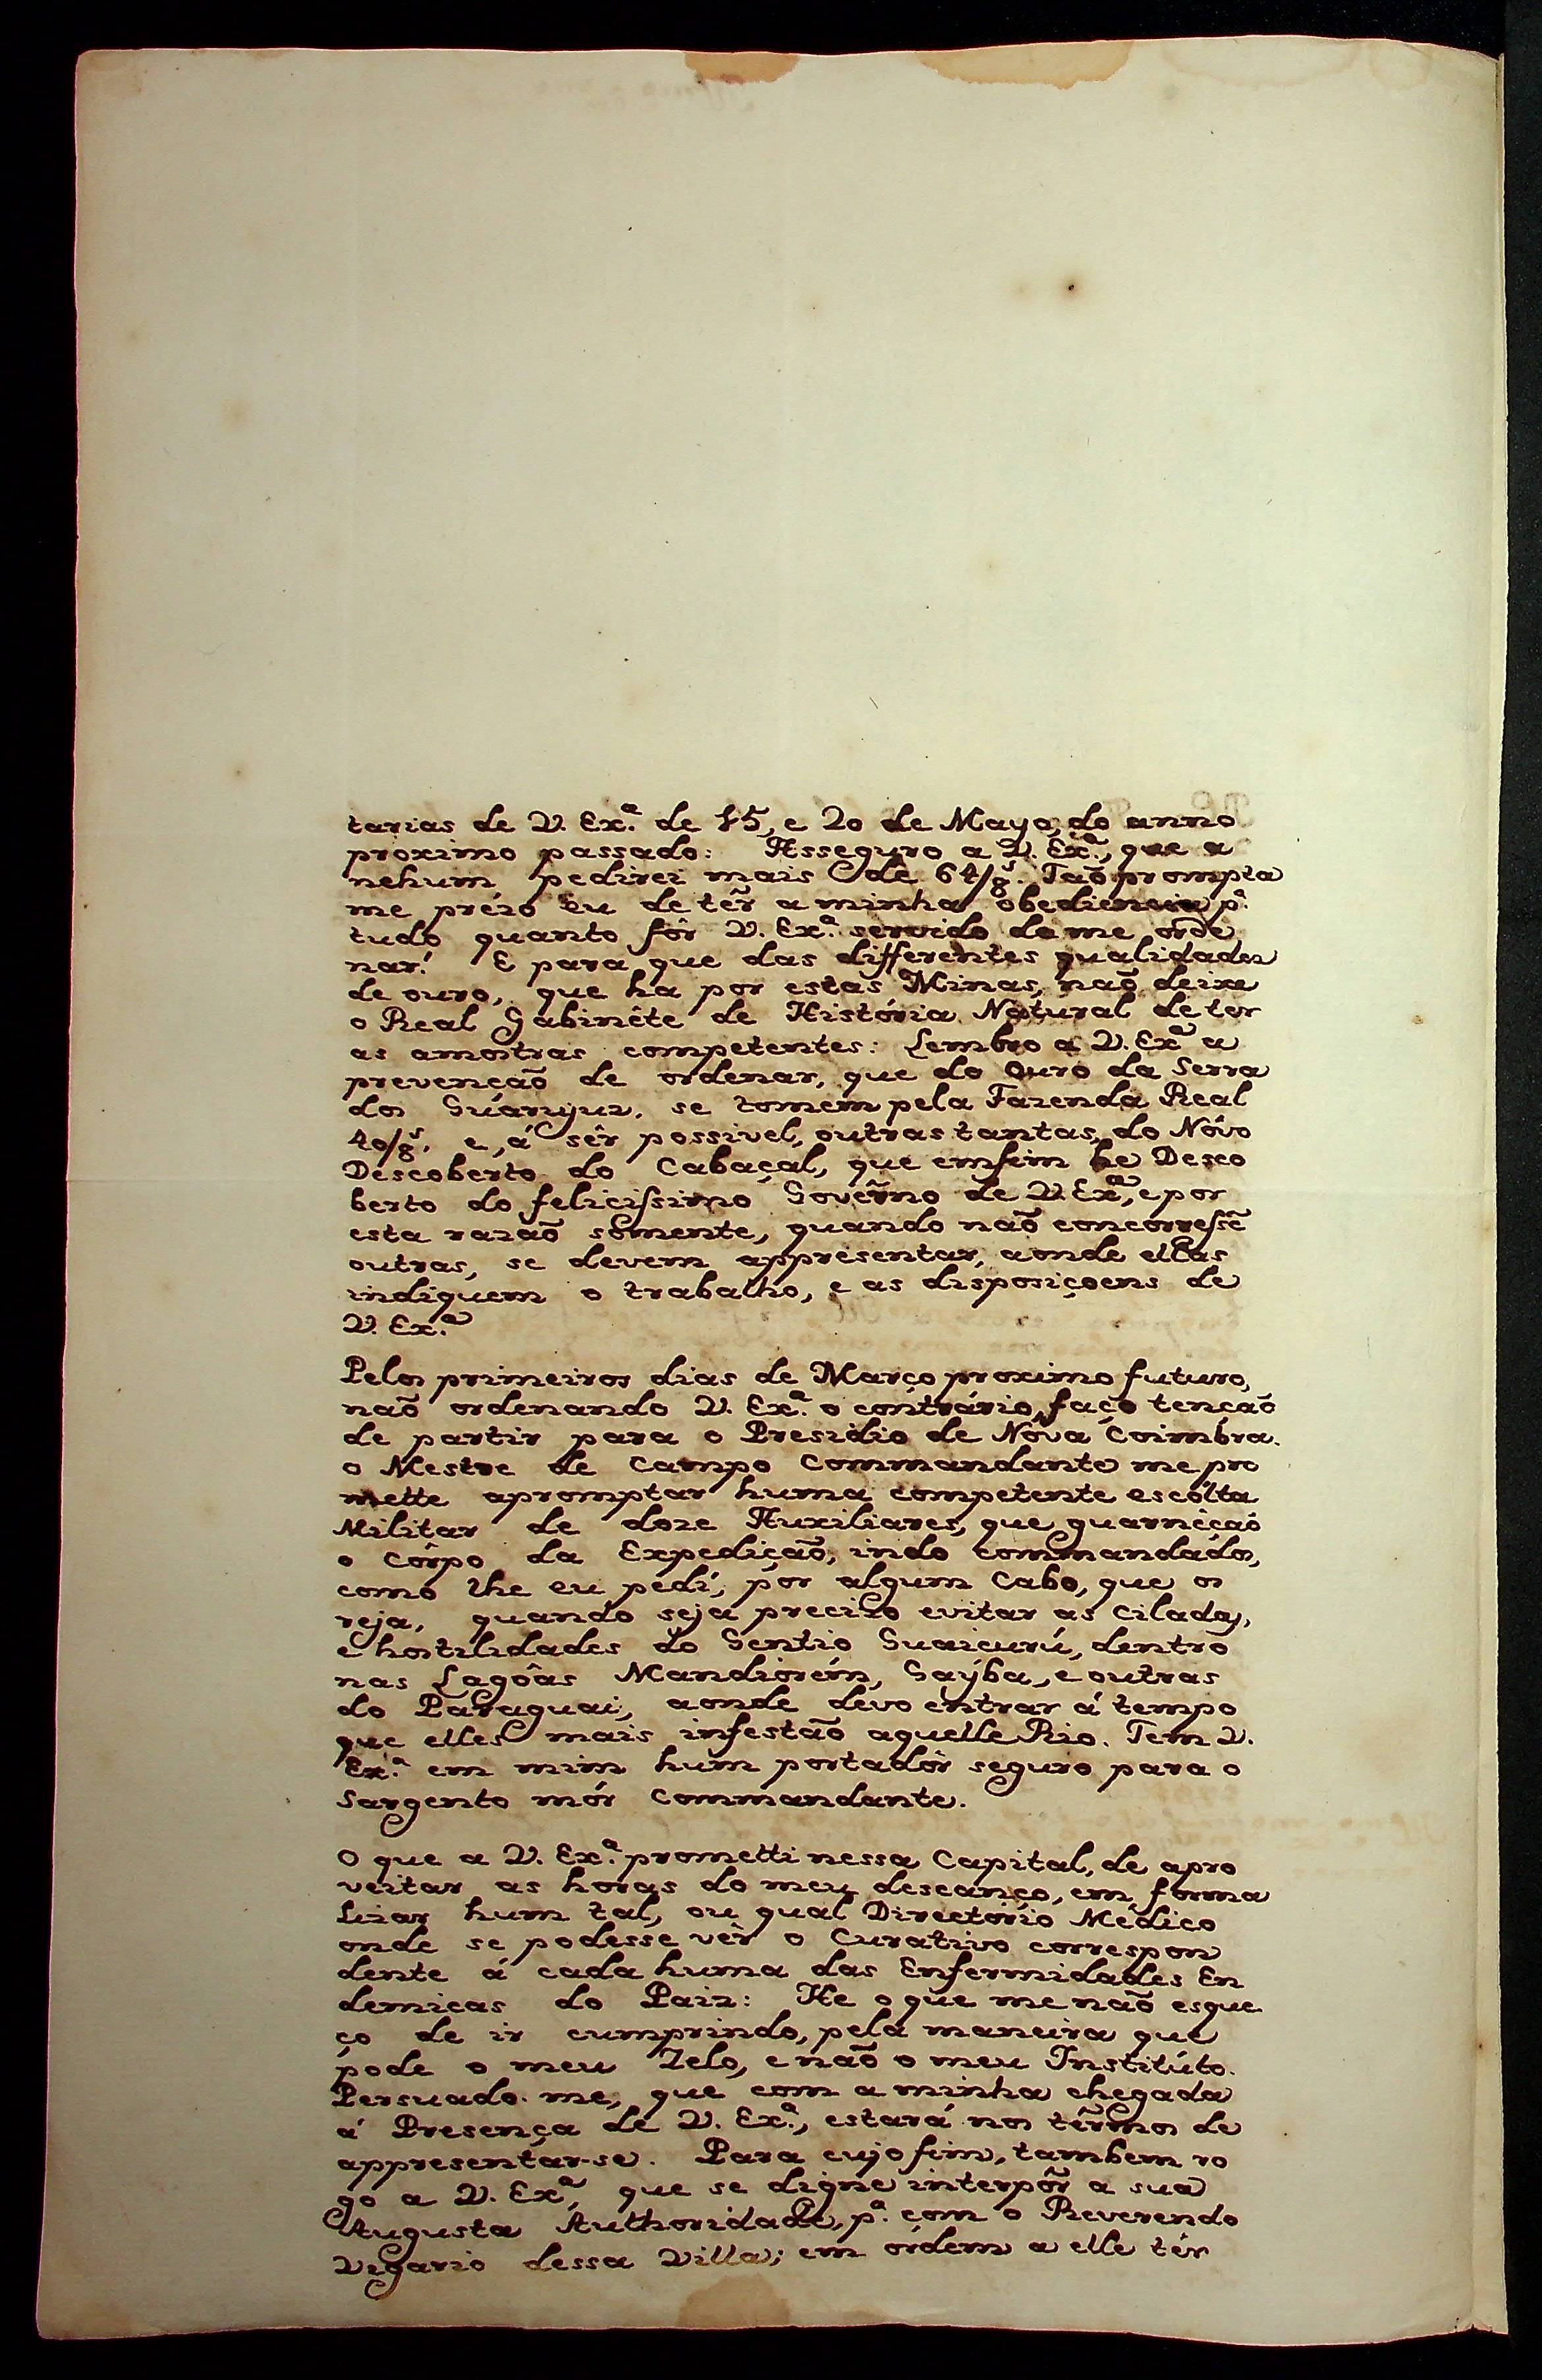 tarias de V. Ex.ª de 15, e 20 de Mayo, do anno
proximo passado: Asseguro a V. Ex.ª, que a
nehum pedirei mais de 64/8.ˢ Taõ prompta
me prézo eu de têr a minha obediencia p.ª
tudo quanto fôr V. Ex.ª servido de me orde
nar. E para que das differentes qualidades
de ouro, que ha por estas Minas, naõ deixe
o Real Gabinête de História Natural de ter
as amostras competentes: Lembro a V. Ex.ª a
prevençaõ de ordenar, que do Ouro da Serra
dos Guarijuz, se tomem pela Fazenda Real
40/8.ˢ, e, á sêr possivel, outras tantas, do Nôvo
Descoberto do Cabaçal, que emfim he Desco
berto do feliciſsimo Govêrno de V. Ex.ª, e por
esta razaõ sómente, quando naõ concorreſsẽ
outras, se devem appresentar, aonde ellas
indiquem o trabalho, e as disposiçoens de
V. Ex.ª
Pelos primeiros dias de Março proximo futuro,
naõ ordenando V. Ex.ª o contrário, faço tençaõ
de partir para o Presidio de Nova Coimbra.
O Mestre de Campo Commandante me pro
mette apromptar huma competente escólta
Militar de doze Auxiliares, que guarneçaõ
o Côrpo da Expediçaõ, indo commandados,
como lhe eu pedí, por algum Cabo, que os
reja, quando seja precizo evitar as Ciladas,
e hostilidades do Gentio Guaicurú, dentro
nas Lagôas Mandiorém, Gaýba, e outras
do Paraguai, aonde devo entrar á tempo
que elles mais infestaõ aquelle Rio. Tem V.
Ex.ª em mim hum portadôr seguro para o
Sargento mór Commandante.
O que a V. Ex.ª prometti nessa Capital, de apro
veitar as horas do meu descanço, em forma
lizar hum tal, ou qual Directório Médico
onde se podesse vêr o Curativo correspon
dente á cada huma das Enfermidades En
demicas do Paiz: He o que me naõ esque
ço de ir cumprindo, pela maneira que
póde o meu Zelo, e naõ o meu Institúto.
Persuado-me, que com a minha chegada
á Presença de V. Ex.ª, estará nos têrmos de
appresentar-se. Para cujo fim, tambem ro
go a V. Ex.ª, que se digne interpôr a sua
Augusta Authoridade, p.ª com o Reverendo
Vigario dessa Villa; em órdem a elle têr